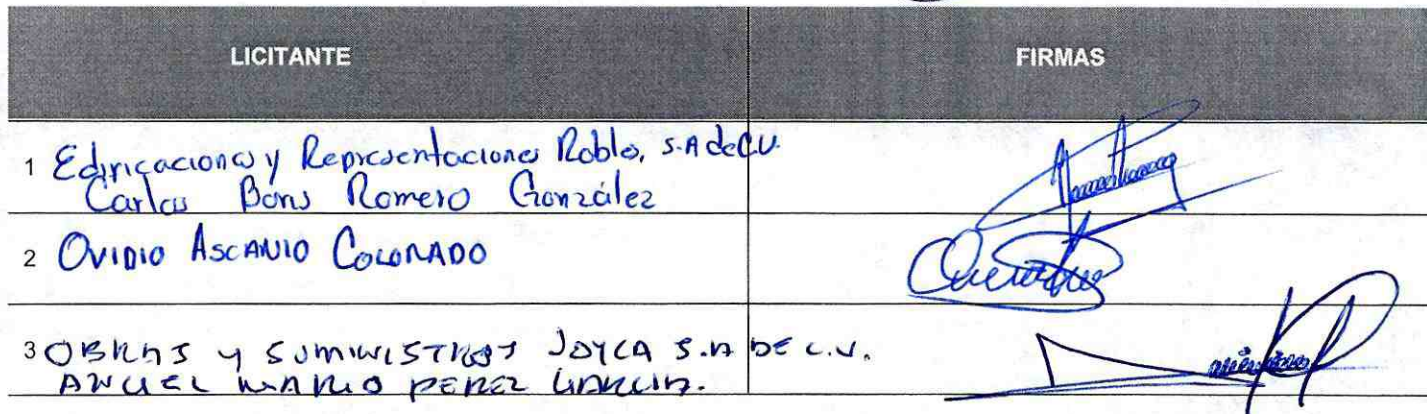 LICITANTE FIRMAS
1 Edificaciones y Representaciones Robles, S.A de C.V.
Carlos Boris Romero González
2 OVIDIO ASCANIO COLORADO
3 OBRAS y SUMINISTROS JOYCA S.A DE C.V.
ANGEL MARIO PEREZ GARCIA.